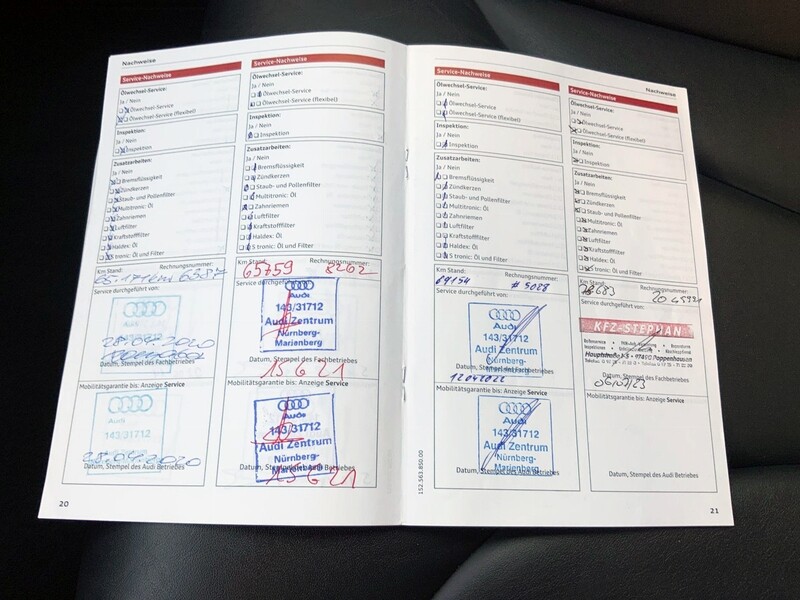 Nachweise
Service-Nachweise
Ölwechsel-Service:
Ja / Nein
Ölwechsel-Service
Ölwechsel-Service (flexibel)
Inspektion:
Ja / Nein
Inspektion
Zusatzarbeiten:
Ja / Nein
Bremsflüssigkeit
Zündkerzen
Staub- und Pollenfilter
Multitronic: Öl
Zahnriemen
Luftfilter
Kraftstofffilter
Haldex: Öl
S tronic: Öl und Filter
Km Stand:
Rechnungsnummer:
Service durchgeführt von:
Audi
143/31712
28.04.2020
Datum, Stempel des Fachbetriebes
Mobilitätsgarantie bis: Anzeige Service
Audi
143/31712
28.04.2020
Datum, Stempel des Audi Betriebes
20
Service-Nachweise
Ölwechsel-Service:
Ja / Nein
Ölwechsel-Service
Ölwechsel-Service (flexibel)
Inspektion:
Ja / Nein
Inspektion
Zusatzarbeiten:
Ja / Nein
Bremsflüssigkeit
Zündkerzen
Staub- und Pollenfilter
Multitronic: Öl
Zahnriemen
Luftfilter
Kraftstofffilter
Haldex: Öl
S tronic: Öl und Filter
Km Stand:
Rechnungsnummer:
65759 8262
Service durchgeführt von:
Audi
143/31712
Audi Zentrum
Nürnberg-
Marienberg
Datum, Stempel des Fachbetriebes
15 6 21
Mobilitätsgarantie bis: Anzeige Service
Audi
143/31712
Audi Zentrum
Nürnberg-
Marienberg
Datum, Stempel des Audi Betriebes
15 6 21
Service-Nachweise
Ölwechsel-Service:
Ja / Nein
Ölwechsel-Service
Ölwechsel-Service (flexibel)
Inspektion:
Ja / Nein
Inspektion
Zusatzarbeiten:
Ja / Nein
Bremsflüssigkeit
Zündkerzen
Staub- und Pollenfilter
Multitronic: Öl
Zahnriemen
Luftfilter
Kraftstofffilter
Haldex: Öl
S tronic: Öl und Filter
Km Stand:
Rechnungsnummer:
# 5028
Service durchgeführt von:
Audi
143/31712
Audi Zentrum
Nürnberg-
Marienberg
Datum, Stempel des Fachbetriebes
12042022
Mobilitätsgarantie bis: Anzeige Service
Audi
143/31712
Audi Zentrum
Nürnberg-
Marienberg
Datum, Stempel des Audi Betriebes
152.563.850.00
Nachweise
Service-Nachweise
Ölwechsel-Service:
Ja / Nein
Ölwechsel-Service
Ölwechsel-Service (flexibel)
Inspektion:
Ja / Nein
Inspektion
Zusatzarbeiten:
Ja / Nein
Bremsflüssigkeit
Zündkerzen
Staub- und Pollenfilter
Multitronic: Öl
Zahnriemen
Luftfilter
Kraftstofffilter
Haldex: Öl
S tronic: Öl und Filter
Km Stand:
Rechnungsnummer:
Service durchgeführt von:
KFZ-STEPHAN
Hauptstraße
Poppenhausen
Datum, Stempel des Fachbetriebes
06/07/23
Mobilitätsgarantie bis: Anzeige Service
Datum, Stempel des Audi Betriebes
21